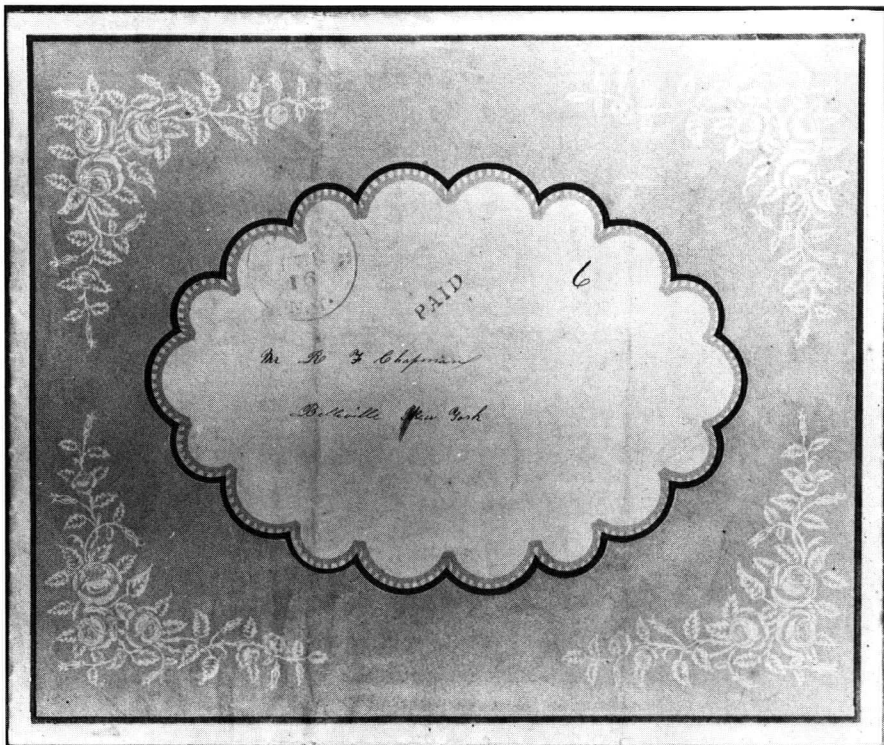 16
PAID
6
Mr R F Chapman
Belleville New York